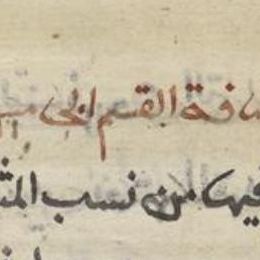 افة القسم الى
فيها من نسب المثـ